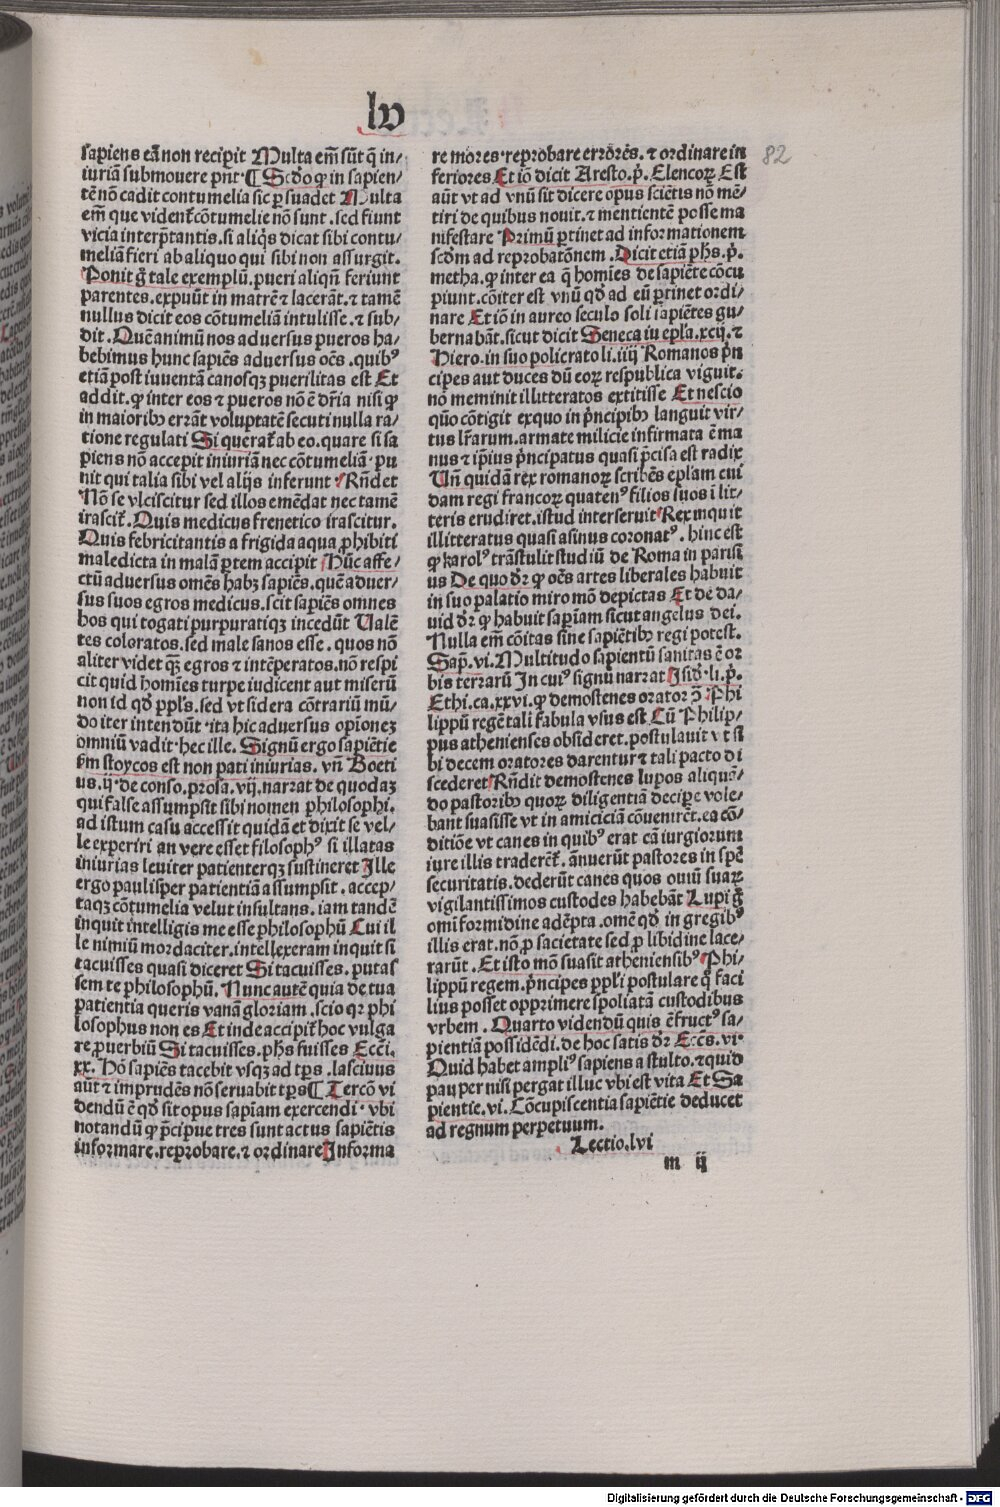 lv
sapiens eā non recipit Multa em̄ sūt q̄ in/
iuriā submouere pn̄t. ¶ Scd̄o ꝙ in sapien/
tē nō cadit contumelia sic ꝑsuadet Multa
em̄ que vident᷑ cōtumelie nō sunt. sed fiunt
vicia interp̄tantis. si aliq̇s dicat sibi contu/
meliā fieri ab aliquo qui sibi non assurgit.
Ponit g̊ tale exemplū. pueri aliqn̄ feriunt
parentes. expuūt in matrē ⁊ lacerāt. ⁊ tamē
nullus dicit eos cōtumeliā intulisse. ⁊ sub/
dit. Quē animū nos aduersus pueros ha/
bebimus hunc sapiēs aduersus oēs. quibꝰ
etiā post iuuentā canosqꝫ puerilitas est Et
addit. ꝙ inter eos ⁊ pueros nō ē dr̄ia nisi ꝙ
in maioribꝫ errāt voluptatē secuti nulla ra/
tione regulati Si querat᷑ ab eo. quare si sa
piens nō accepit iniuriā nec cōtumeliā. pu
nit qui talia sibi vel alijs inferunt Rn̄det
Nō se vlciscitur sed illos emēdat nec tamē
irascit᷑. Quis medicus frenetico irascitur.
Quis febricitantis a frigida aqua ꝓhibiti
maledicta in malā ꝑtem accipit Hūc affe/
ctū aduersus omēs habꝫ sapiēs. quē aduer/
sus suos egros medicus. scit sapiēs omnes
hos qui togati purpuratiqꝫ incedūt Valē
tes coloratos. sed male sanos esse. quos nō
aliter videt qꝫ̄ egros ⁊ intēperatos. nō respi
cit quid homīes turpe iudicent aut miserū
non id qd̄ ppl̄s. sed vt sidera cōtrariū mū/
do iter intendūt. ita hic aduersus opīoneꝫ
omniū vadit. hec ille. Signū ergo sapiētie
ẜm stoycos est non pati iniurias. vn̄ Boeti
us. ij. de conso. prosa. vij. narrat de quodaꝫ
qui false assumpsit sibi nomen philosophi.
ad istum casu accessit quidā et dixit se vel/
le experiri an vere esset filosophꝰ si illatas
iniurias leuiter patienterqꝫ sustineret Ille
ergo paulisper patientiā assumpsit. accep/
taqꝫ cōtumelia velut insultans. iam tandē
inquit intelligis me esse philosophū Cui il
le nimiū mordaciter. intellexeram inquit si
tacuisses quasi diceret Si tacuisses. putas
sem te philosophū. Nunc autē quia de tua
patientia queris vanā gloriam. scio qꝛ phi
losophus non es Et inde accipit᷑ hoc vulga
re ꝓuerbiū Si tacuisses. ph̄s fuisses Ecci̅.
xx. Hō sapiēs tacebit vsqꝫ ad tp̄s. lasciuus
aūt ⁊ imprudēs nō seruabit tp̄s ¶ Tercō vi
dendū ē qd̄ sit opus sap̄iam exercendi. vbi
notandū ꝙ p̄cipue tres sunt actus sapiētis
informare. reprobare. ⁊ ordinare Informa
re mores. reprobare errōrēs. ⁊ ordinare in
feriores Et iō dicit Aresto. p̄. Elencoꝝ Est
aūt vt ad vnū sit dicere opus sciētis nō mē/
tiri de quibus nouit. ⁊ mentientē posse ma
nifestare Primū ꝑtinet ad informationem
scd̄m ad reprobatōnem. Dicit etiā ph̄s. p̄.
metha. ꝙ inter ea q̄ homīes de sapiēte cōcu
piunt. cōiter est vnū qd̄ ad eū ꝑtinet ordi/
nare Et iō in aureo seculo soli sapiētes gu/
bernabāt. sicut dicit Seneca in epl̄a. xcij. ⁊
Hiero. in suo policrato li. iiij Romanos p̄n
cipes aut duces dū eoꝝ respublica viguit.
nō meminit illitteratos extitisse Et nescio
quō cōtigit exquo in p̄ncipibꝫ languit vir/
tus lr̄arum. armate milicie infirmata ē ma
nus ⁊ ip̄ius p̄ncipatus quasi p̄cisa est radix
Vn̄ quidā rex romanoꝝ scribēs epl̄am cui
dam regi francoꝝ quatenꝰ filios suos ī lit/
teris erudiret. istud interseruit Rex inquit
illitteratus quasi asinus coronatꝰ. hinc est
ꝙ karolꝰ trāstulit studiū de Roma in parisi
us De quo dr̄ ꝙ oēs artes liberales habuit
in suo palatio miro mō depictas Et de da/
uid dr̄ ꝙ habuit sap̄iam sicut angelus dei.
Nulla em̄ cōitas sine sapiētibꝫ regi potest.
Sap̄. vi. Multitudo sapientū sanitas ē or
bis terrarū In cuiꝰ signū narrat Isid̄. li. p̄.
Ethi. ca. xxvi. ꝙ demostenes orator ↄ̄ Phi
lippū regē tali fabula vsus est Cū Philip/
pus athenienses obsideret. postulauit vt si
bi decem oratores darentur ⁊ tali pacto di
scederet Rn̄dit demostenes lupos aliquē/
do pastoribꝫ quoꝝ diligentiā decipe vole/
bant suasisse vt in amiciciā cōuenirēt. ea cō/
ditiōe vt canes in quibꝰ erat cā iurgiorum
iure illis traderēt᷑. ānuerūt pastores in spē
securitatis. dederūt canes quos ouiū suaꝝ
vigilantissimos custodes habebāt Lupi g̊
omī formidine adēpta. omē qd̄ in gregibꝰ
illis erat. nō ꝓ societate sed ꝓ libidine lace/
rarūt. Et isto mō suasit atheniensibꝰ Phi/
lippū regem. p̄ncipes ppl̄i postulare q̊ faci
lius posset opprimere spoliatā custodibus
vrbem. Quarto videndū quis ē fructꝰ sa/
pientiā possidēdi. de hoc satis dr̄ Eccs̄. vi.
Quid habet ampliꝰ sapiens a stulto. ⁊ quid
pauper nisi pergat illuc vbi est vita Et Sa
pientie. vi. Cōcupiscentia sapiētie deducet
ad regnum perpetuum.
Lectio. lvi
m ij
82
Digitalisierung gefördert durch die Deutsche Forschungsgemeinschaft - DFG